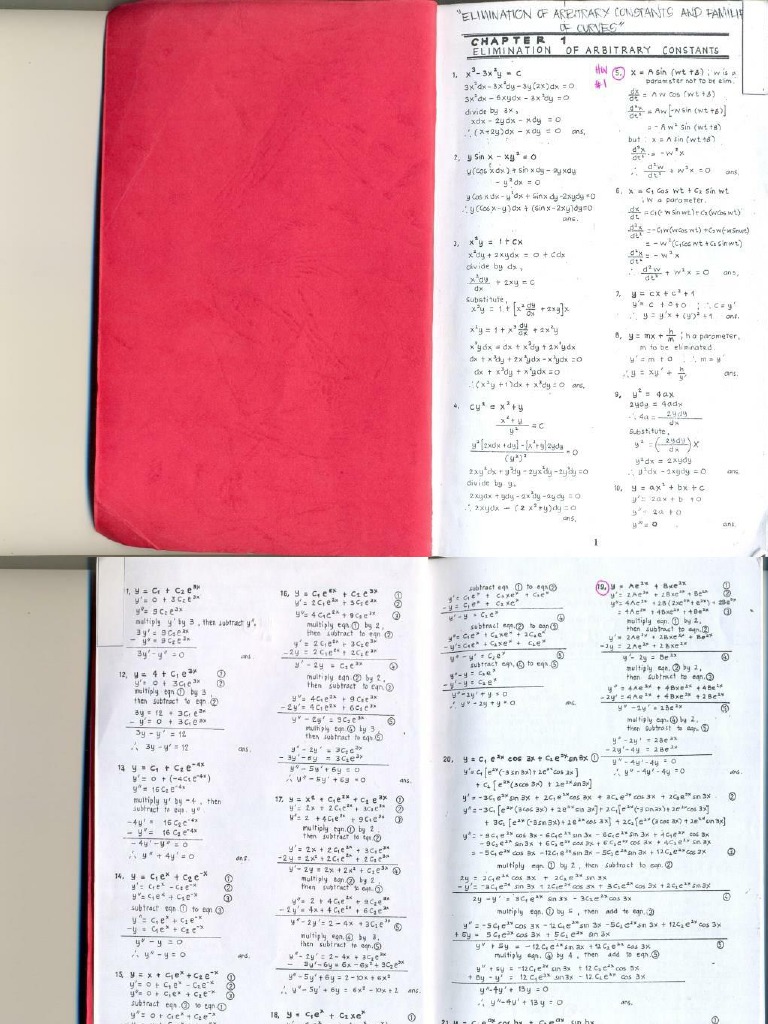 "ELIMINATION OF ARBITRARY CONSTANTS AND FAMILIE
OF CURVES"
CHAPTER 1
ELIMINATION OF ARBITRARY CONSTANTS
1. x³-3x²y = C
3x²dx-3x²dy-3y(2X)dx = 0
3x²dx-6xydx-3x²dy = 0
divide by 3x,
xdx-2ydx-xdy = 0
∴ (x-2y)dx-xdy = 0 ans.
2. y sin x - xy² = 0
y(cos x dx) + sin x dy - 2xydy
- y²dx = 0
y cos x dx - y²dx + sin x dy - 2xydy = 0
∴ y(cos x-y)dx + (sin x-2xy)dy=0
ans.
3. x²y = 1 + cx
x²dy + 2xydx = 0 + Cdx
divide by dx,
x²dy/dx + 2xy = C
Substitute,
x²y = 1 + [x² dy/dx + 2xy]x
x²y = 1 + x³ dy/dx + 2x²y
x²ydx = dx + x³dy + 2x²ydx
dx + x³dy + 2x²ydx - x²ydx = 0
dx + x³dy + x²ydx = 0
∴ (x²y+1)dx + x³dy = 0 ans.
4. cy² = x²+y
x²+y/y² = C
y²[2xdx+dy]-[x²+y]2ydy/(y²)² = 0
2xy²dx+y²dy-2yx²dy-2y²dy=0
divide by y,
2xydx+ydy-2x²dy-2ydy = 0
∴ 2xydx - (2x²+y)dy = 0
ans.
HW
#1
5. x = A sin (wt+B) ; w is a
parameter not to be elim.
dx/dt = Aw cos (wt+B)
d²x/dt² = Aw[-w sin (wt+B)]
= -Aw² sin (wt+B)
but : x = A sin (wt+B)
d²x/dt² = -w²x
∴ d²w/dt² + w²x = 0 ans.
6. x = C₁ cos wt + C₂ sin wt
; w a parameter.
dx/dt = C₁(-w sin wt) + C₂(w cos wt)
d²x/dt² = -C₁w(w cos wt) + C₂w(-w sin wt)
= -w²(C₁cos wt + C₂ sin wt)
d²x/dt² = -w²x
∴ d²w/dt² + w²x = 0 ans.
7. y = cx + c²+1
y' = c + 0 + 0 ; ∴ c = y'
∴ y = y'x + (y')²+1 ans.
8. y = mx + h/m ; h a parameter,
m to be eliminated.
y' = m + 0 ∴ m = y'
∴ y = xy' + h/y' ans.
9. y² = 4ax
2ydy = 4adx
∴ 4a = 2ydy/dx
Substitute,
y² = (2ydy/dx)x
y²dx = 2xydy
∴ y²dx - 2xydy = 0 ans.
10. y = ax²+bx+c
y' = 2ax + b + 0
y'' = 2a + 0
y''' = 0 ans.
1
11. y = C₁ + C₂e³ˣ
y' = 0 + 3C₂e³ˣ
y'' = 9C₂e³ˣ
multiply y' by 3, then subtract y'',
3y' = 9C₂e³ˣ
-y'' = 9C₂e³ˣ
3y'-y'' = 0 ans.
12. y = 4 + C₁e³ˣ ①
y' = 0 + 3C₁e³ˣ ②
multiply eqn ① by 3,
then subtract to eqn. ②
3y = 12 + 3C₁e³ˣ
-y' = 0 + 3C₁e³ˣ
3y-y' = 12
∴ 3y-y' = 12 ans.
13. y = C₁ + C₂e⁻⁴ˣ
y' = 0 + (-4C₂e⁻⁴ˣ)
y'' = 16C₂e⁻⁴ˣ
multiply y' by -4, then
subtract to eqn. y''
-4y' = 16C₂e⁻⁴ˣ
-y'' = 16C₂e⁻⁴ˣ
-4y'-y'' = 0
∴ y''+4y' = 0 ans.
14. y = C₁eˣ + C₂e⁻ˣ ①
y' = C₁eˣ - C₂e⁻ˣ ②
y'' = C₁eˣ + C₂e⁻ˣ ③
subtract eqn. ① to eqn ③
y'' = C₁eˣ + C₂e⁻ˣ
-y = C₁eˣ + C₂e⁻ˣ
y''-y = 0
∴ y''-y = 0 ans.
15. y = x + C₁eˣ + C₂e⁻ˣ ①
y' = 0 + C₁eˣ - C₂e⁻ˣ ②
y'' = 0 + C₁eˣ + C₂e⁻ˣ ③
subtract eqn. ② to eqn. ①
y'' = 0 + C₁eˣ + C₂e⁻ˣ
16. y = C₁e²ˣ + C₂e³ˣ ①
y' = 2C₁e²ˣ + 3C₂e³ˣ ②
y'' = 4C₁e²ˣ + 9C₂e³ˣ ③
multiply eqn. ① by 2,
then subtract to eqn ②
y' = 2C₁e²ˣ + 3C₂e³ˣ
-2y = 2C₁e²ˣ + 2C₂e³ˣ
y'-2y = C₂e³ˣ ④
multiply eqn. ② by 2,
then subtract to eqn. ③
y'' = 4C₁e²ˣ + 9C₂e³ˣ
-2y' = 4C₁e²ˣ + 6C₂e³ˣ
y''-2y' = 3C₂e³ˣ ⑤
multiply eqn. ④ by 3,
subtract to eqn. ⑤
y''-2y' = 3C₂e³ˣ
-3y'-6y = 3C₂e³ˣ
y''-5y'+6y = 0
∴ y''-5y'+6y = 0 ans.
17. y = x² + C₁e²ˣ + C₂e³ˣ ①
y' = 2x + 2C₁e²ˣ + 3C₂e³ˣ ②
y'' = 2 + 4C₁e²ˣ + 9C₂e³ˣ ③
multiply eqn. ① by 2,
then subtract to eqn. ②
y' = 2x + 2C₁e²ˣ + 3C₂e³ˣ
-2y = 2x² + 2C₁e²ˣ + 2C₂e³ˣ
y'-2y = 2x - 2x² + C₂e³ˣ ④
multiply eqn. ② by 2
then subtract to eqn. ③
y'' = 2 + 4C₁e²ˣ + 9C₂e³ˣ
-2y' = 4x + 4C₁e²ˣ + 6C₂e³ˣ
y''-2y' = 2 - 4x + 3C₂e³ˣ ⑤
multiply eqn. ④ by 3,
then subtract to eqn. ⑤
y''-2y' = 2 - 4x + 3C₂e³ˣ
3y'-6y = 6x - 6x² + 3C₂e³ˣ
y''-5y'+6y = 2 - 10x + 6x²
∴ y''-5y'+6y = 6x²-10x+2 ans.
18. y = C₁eˣ + C₂xeˣ ①
subtract eqn. ① to eqn. ②
y' = C₁eˣ + C₂xeˣ + C₂eˣ
-y = C₁eˣ + C₂xeˣ
y'-y = C₂eˣ ④
subtract eqn. ② to eqn. ③
y'' = C₁eˣ + C₂xeˣ + 2C₂eˣ
-y' = C₁eˣ + C₂xeˣ + C₂eˣ
y''-y' = C₂eˣ ⑤
subtract eqn. ④ to eqn. ⑤
y''-y' = C₂eˣ
-y'-y = C₂eˣ
y''-2y'+y = 0
∴ y''-2y'+y = 0 ans.
19. y = Ae²ˣ + Bxe²ˣ ①
y' = 2Ae²ˣ + 2Bxe²ˣ + Be²ˣ ②
multiply eqn. ① by 2,
then subtract to eqn. ②
y' = 2Ae²ˣ + 2Bxe²ˣ + Be²ˣ
-2y = 2Ae²ˣ + 2Bxe²ˣ
y'-2y = Be²ˣ ④
multiply eqn. ② by 2,
then subtract to eqn. ③
y'' = 4Ae²ˣ + 4Bxe²ˣ + 4Be²ˣ
-2y' = 4Ae²ˣ + 4Bxe²ˣ + 2Be²ˣ
y''-2y' = 2Be²ˣ ⑤
multiply eqn. ④ by 2,
subtract to eqn. ⑤
y''-2y' = 2Be²ˣ
-2y'-4y = 2Be²ˣ
y''-4y'-4y = 0
∴ y''-4y'-4y = 0 ans.
20. y = C₁e²ˣ cos 3x + C₂e²ˣ sin 3x ①
y' = C₁[e²ˣ(-3 sin 3x) + 2e²ˣ cos 3x]
+ C₂[e²ˣ(3cos 3x) + 2e²ˣ sin 3x]
y' = -3C₁e²ˣ sin 3x + 2C₁e²ˣ cos 3x + 3C₂e²ˣ cos 3x + 2C₂e²ˣ sin 3x ②
multiply eqn. ① by 2, then subtract to eqn. ②
2y = 2C₁e²ˣ cos 3x + 2C₂e²ˣ sin 3x
multiply eqn. ① by 5, then add to eqn. ③
y'' + 5y = -12C₁e²ˣ sin 3x + 12C₂e²ˣ cos 3x
multiply eqn. ④ by 4, then add to eqn. ⑤
y''-4y'+13y = 0
∴ y''-4y'+13y = 0 ans.